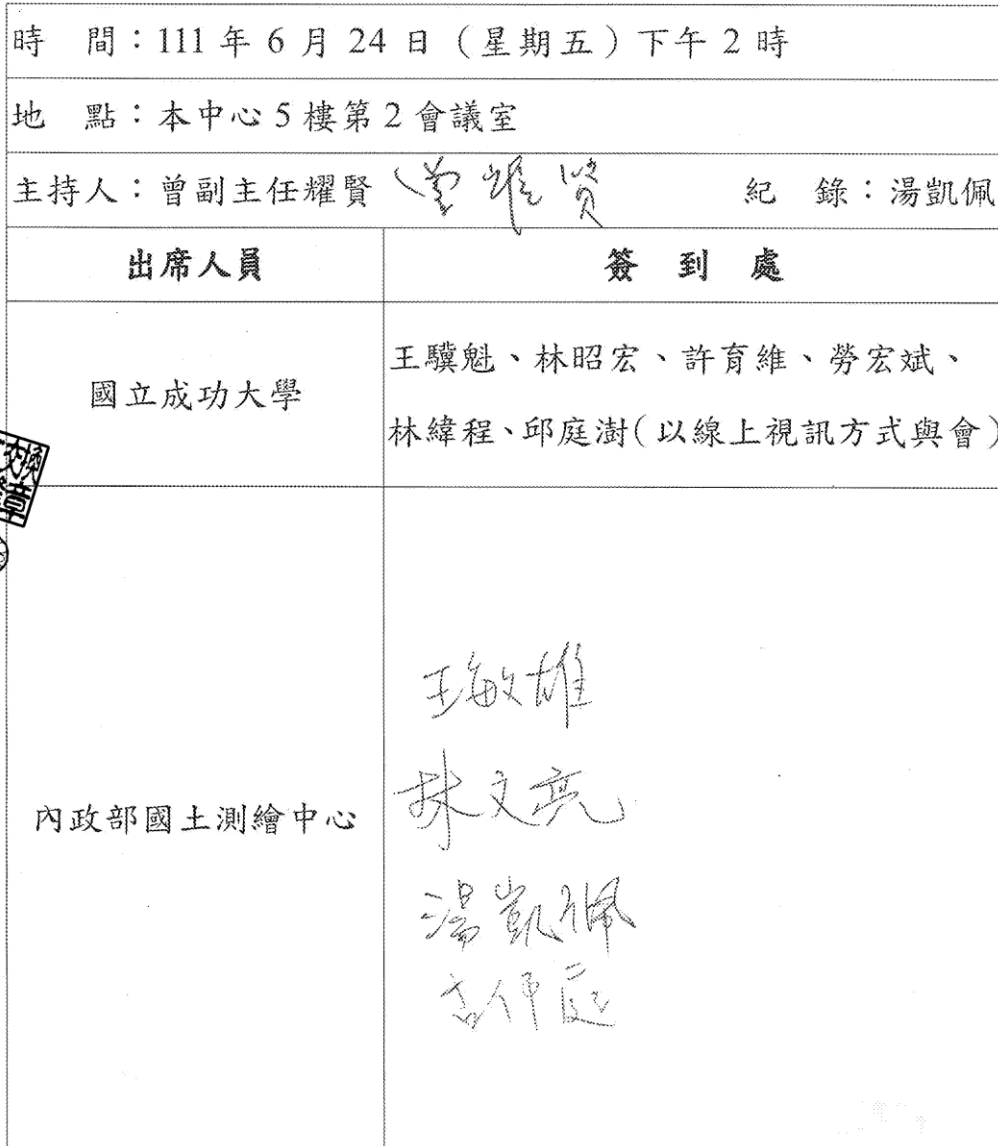 時　間：111 年 6 月 24 日（星期五）下午 2 時
地　點：本中心 5 樓第 2 會議室
主持人：曾副主任耀賢 曾耀賢 紀　錄：湯凱佩
出席人員 簽　到　處
國立成功大學
王驥魁、林昭宏、許育維、勞宏斌、
林緯程、邱庭澍（以線上視訊方式與會）
交換
章
內政部國土測繪中心
王敏雄
林文亮
湯凱佩